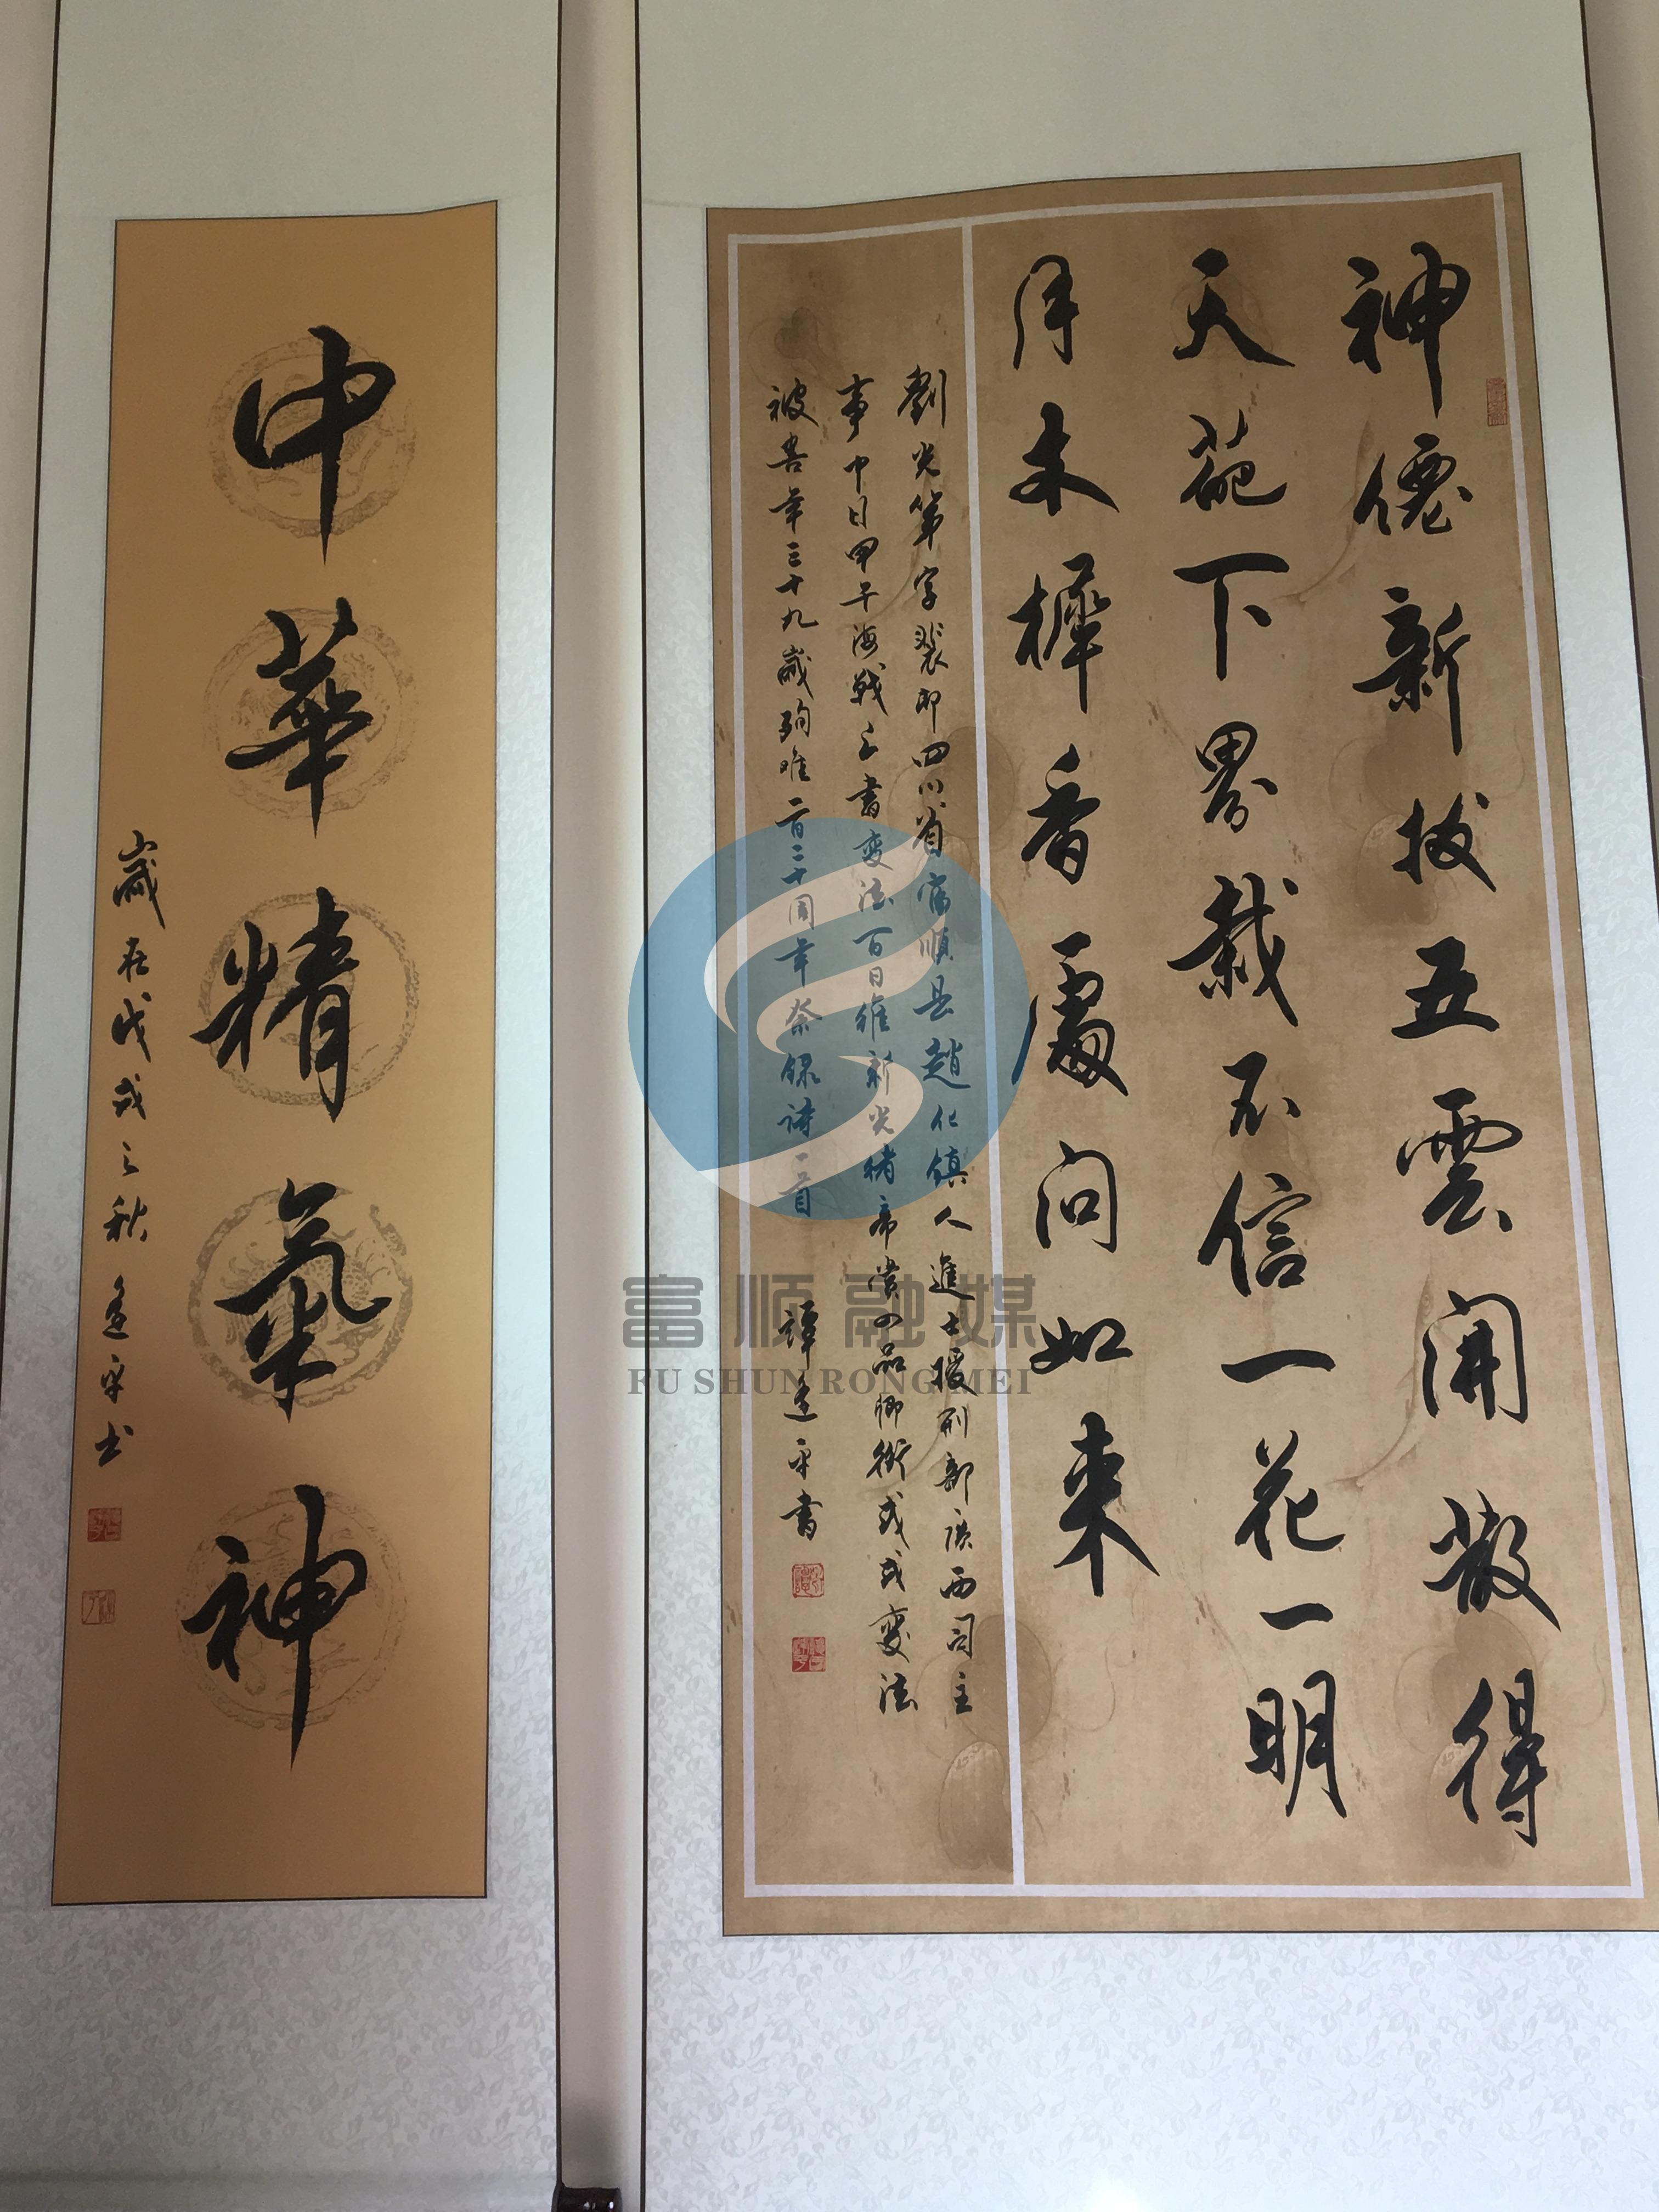 神僊新拔五雲開散得
天葩下界栽不信一花一明
月木樨香處问如来
劉光第字裴邨四川省富順县趙化镇人進士授刑部廣西司主
事中日甲午海戰上書变法百日维新光緒帝賞四品卿衔戊戌變法
被害年三十九歲殉难一百二十周年奈録詩一首 譚逢平書
中華精氣神
歲在戊戌之秋逢平书
富顺融媒
FU SHUN RONG MEI